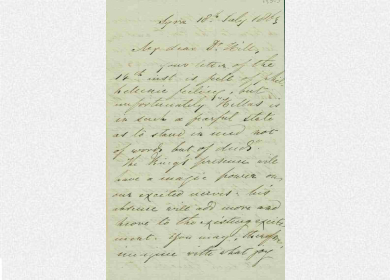 Syra 18th July 1863
My dear Dr Hill,
your letter of the
14th inst. is full of phil-
hellenic feelings, but
unfortunately Hellas is
in such a fearful state
as to stand in need not
of words but of deeds.
The King's presence will
have a magic power on
our excited nerves - his
absence will add more and
more to the existing excite
ment. You may, therefore,
imagine with what joy